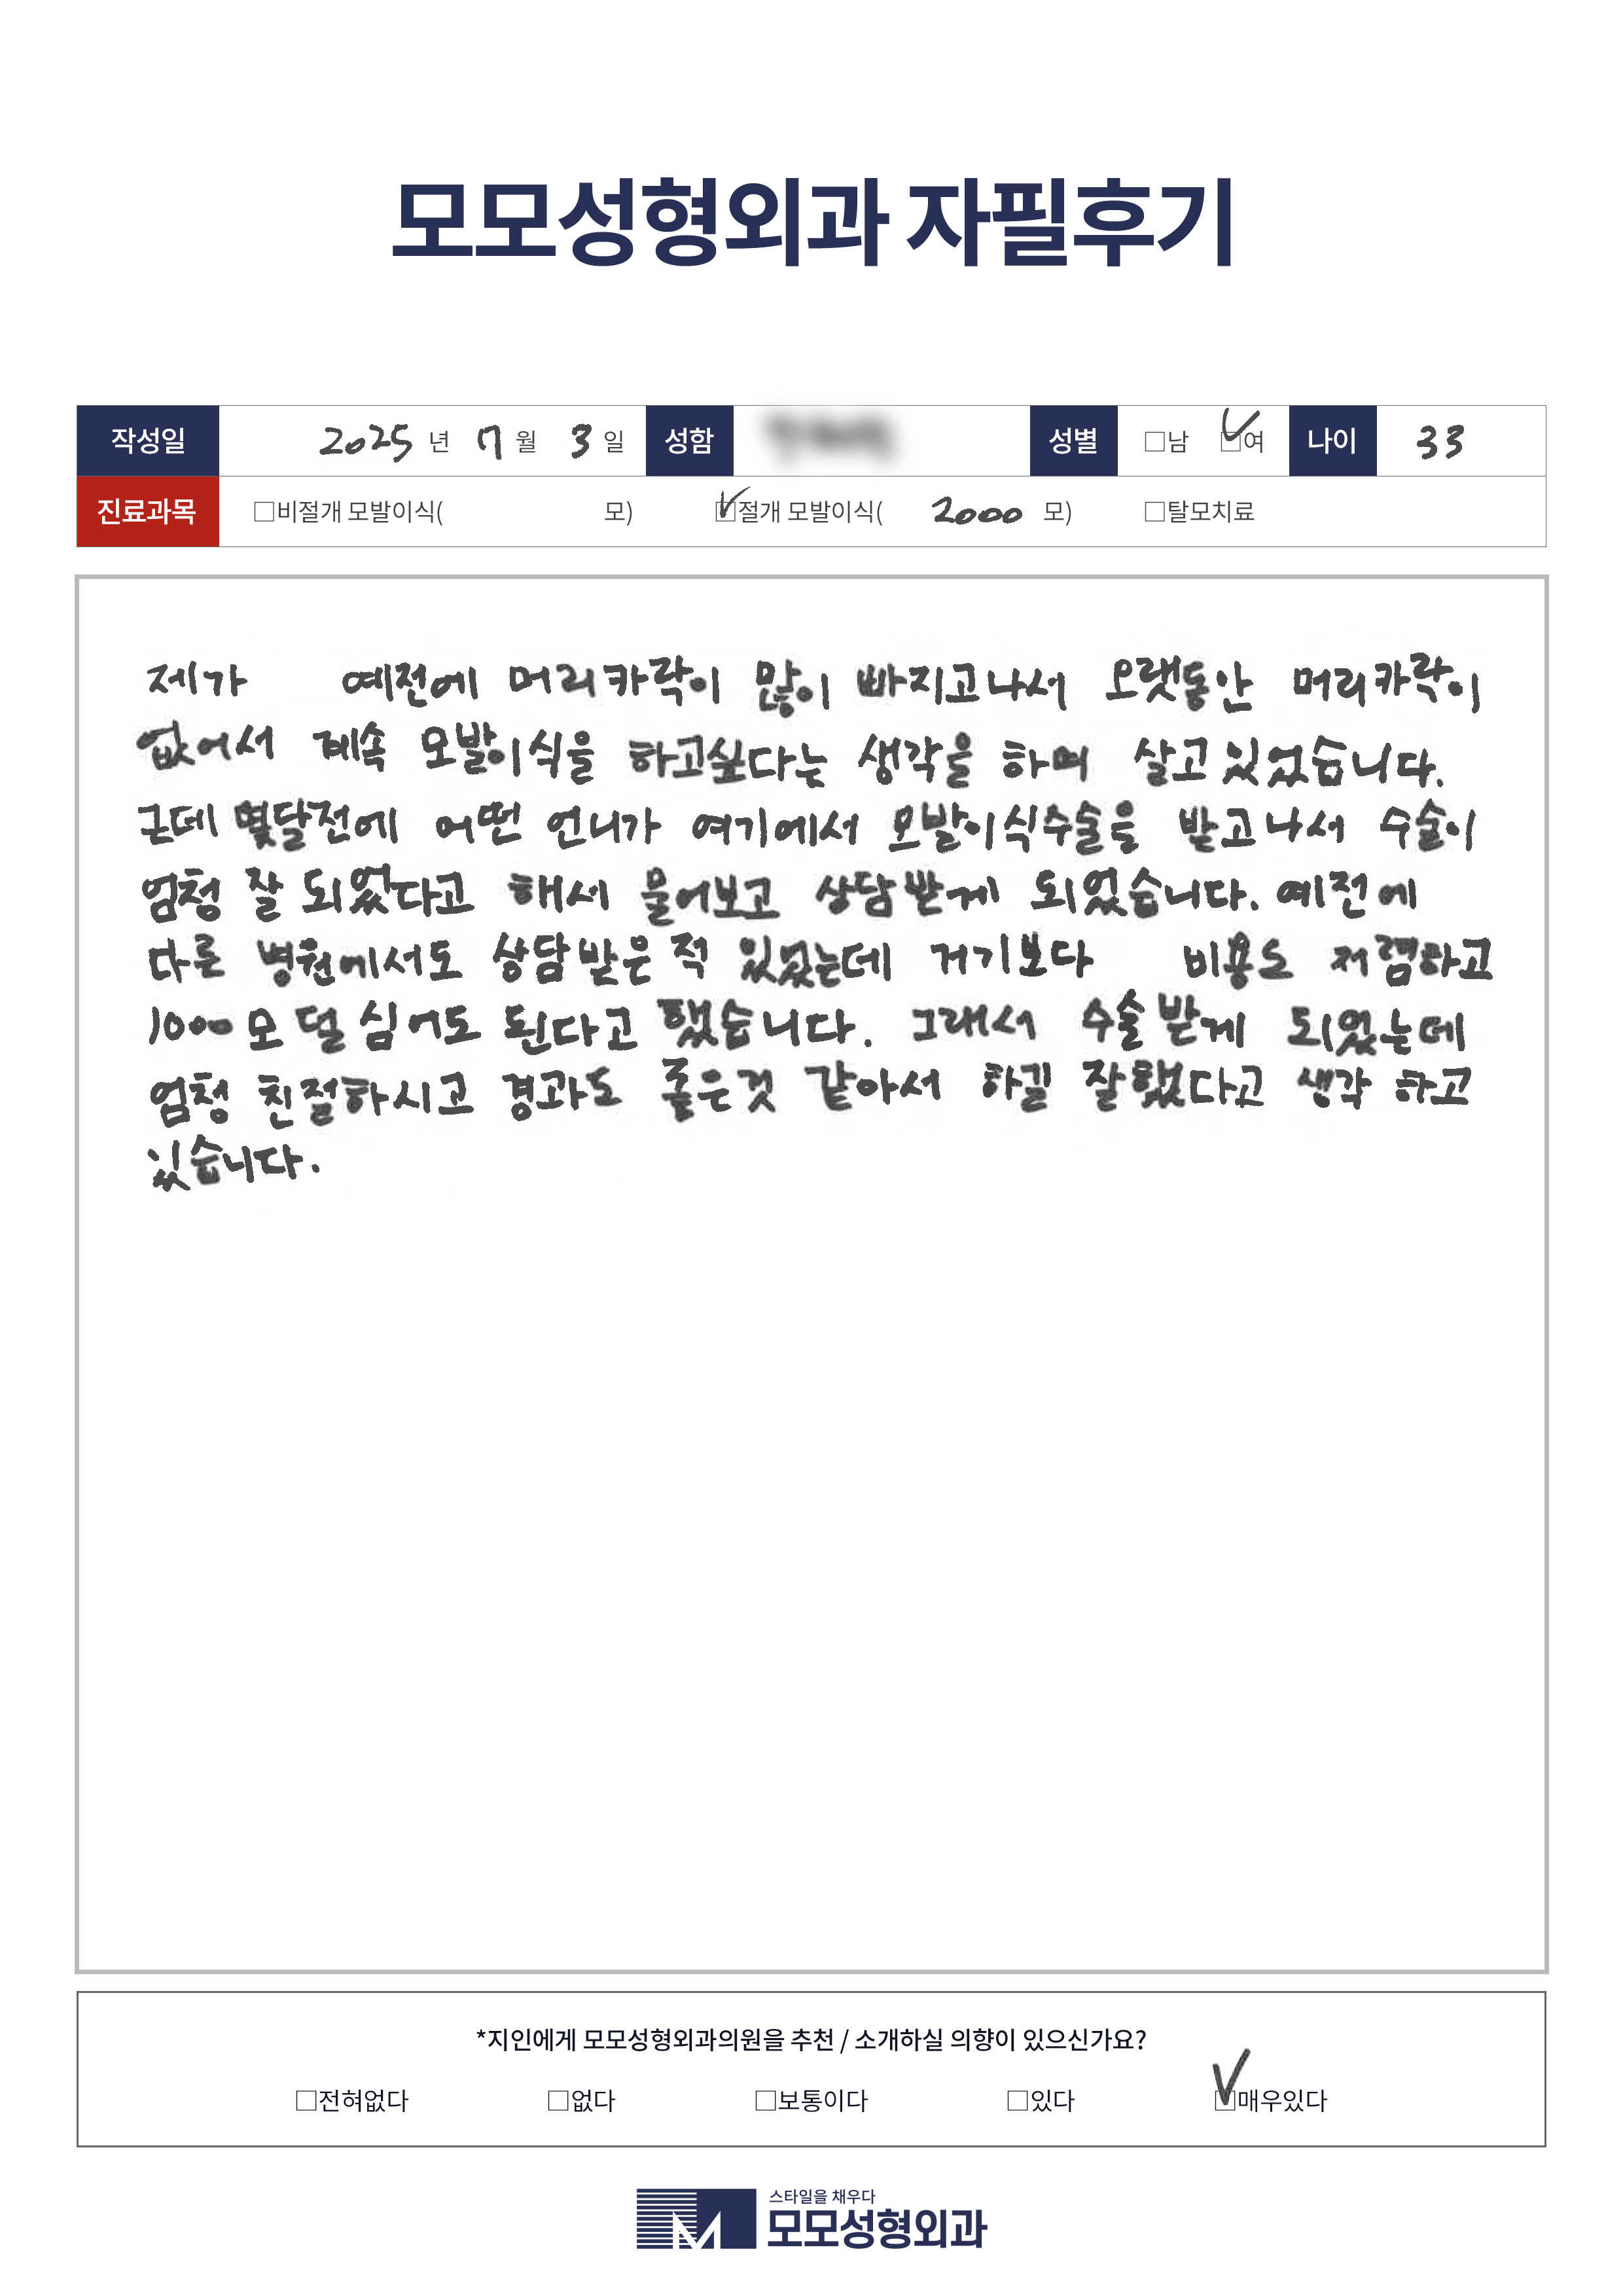 모모성형외과 자필후기
작성일 2025 년 7 월 3 일 성함 성별 □남 ☑여 나이 33
진료과목 □비절개 모발이식( 모) ☑절개 모발이식( 2000 모) □탈모치료
제가 예전에 머리카락이 많이 빠지고나서 오랫동안 머리카락이
없어서 계속 모발이식을 하고싶다는 생각을 하며 살고있었습니다.
근데 몇달전에 어떤 언니가 여기에서 모발이식수술을 받고나서 수술이
엄청 잘 되었다고 해서 물어보고 상담받게 되었습니다. 예전에
다른 병원에서도 상담받은적 있었는데 거기보다 비용도 저렴하고
1000모 덜 심어도 된다고 했습니다. 그래서 수술받게 되었는데
엄청 친절하시고 경과도 좋은것 같아서 하길 잘했다고 생각 하고
있습니다.
*지인에게 모모성형외과의원을 추천 / 소개하실 의향이 있으신가요?
□전혀없다 □없다 □보통이다 □있다 ☑매우있다
스타일을 채우다
모모성형외과